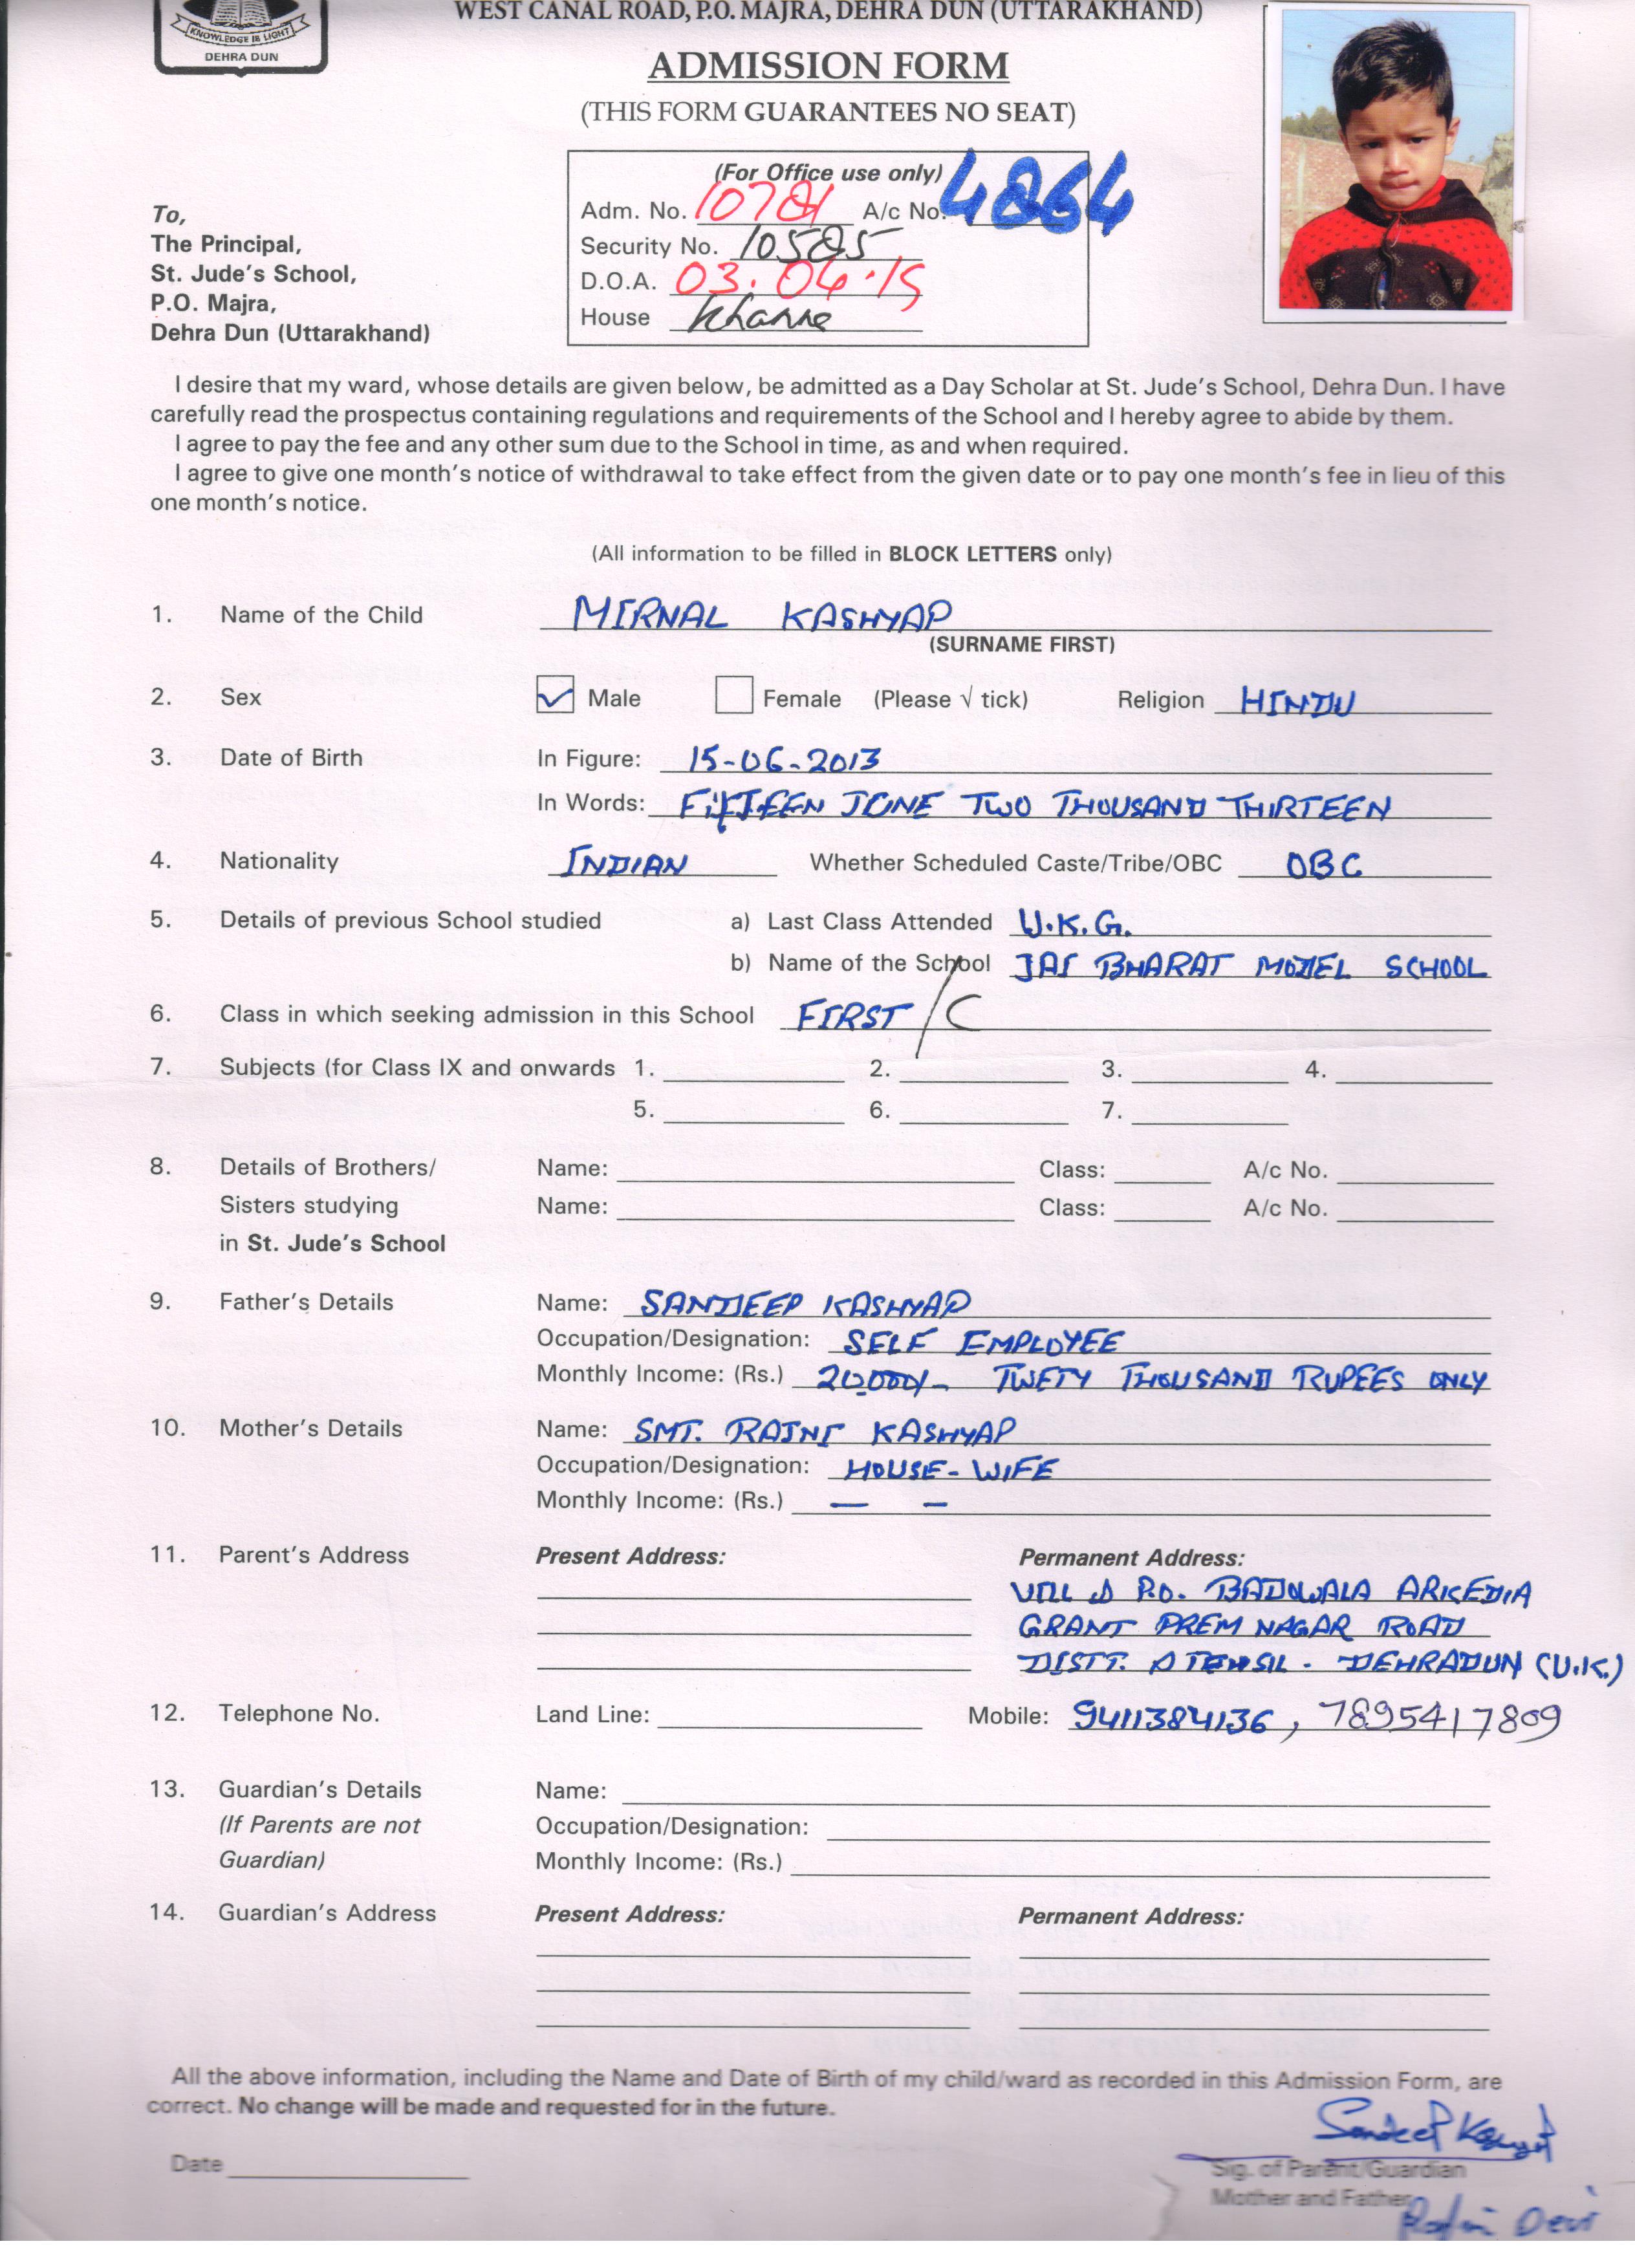 KNOWLEDGE IS LIGHT
DEHRA DUN
WEST CANAL ROAD, P.O. MAJRA, DEHRA DUN (UTTARAKHAND)
ADMISSION FORM
(THIS FORM GUARANTEES NO SEAT)
(For Office use only)
Adm. No. 10781 A/c No. 4864
Security No. 10585
D.O.A. 03.04.19
House Khanna
To,
The Principal,
St. Jude's School,
P.O. Majra,
Dehra Dun (Uttarakhand)
I desire that my ward, whose details are given below, be admitted as a Day Scholar at St. Jude's School, Dehra Dun. I have
carefully read the prospectus containing regulations and requirements of the School and I hereby agree to abide by them.
I agree to pay the fee and any other sum due to the School in time, as and when required.
I agree to give one month's notice of withdrawal to take effect from the given date or to pay one month's fee in lieu of this
one month's notice.
(All information to be filled in BLOCK LETTERS only)
1. Name of the Child MIRNAL KASHYAP
(SURNAME FIRST)
2. Sex Male Female (Please √ tick) Religion HINDU
3. Date of Birth In Figure: 15-06-2013
In Words: FIFTEEN JUNE TWO THOUSAND THIRTEEN
4. Nationality INDIAN Whether Scheduled Caste/Tribe/OBC OBC
5. Details of previous School studied a) Last Class Attended U.K.G.
b) Name of the School JAI BHARAT MODEL SCHOOL
6. Class in which seeking admission in this School FIRST / C
7. Subjects (for Class IX and onwards 1. 2. 3. 4.
5. 6. 7.
8. Details of Brothers/ Name: Class: A/c No.
Sisters studying Name: Class: A/c No.
in St. Jude's School
9. Father's Details Name: SANDEEP KASHYAP
Occupation/Designation: SELF EMPLOYEE
Monthly Income: (Rs.) 20,000/- TWETY THOUSAND RUPEES ONLY
10. Mother's Details Name: SMT. RAJNI KASHYAP
Occupation/Designation: HOUSE-WIFE
Monthly Income: (Rs.) — –
11. Parent's Address Present Address: Permanent Address:
VILL & P.O. BADOWALA ARKEDIA
GRANT PREM NAGAR ROAD
DISTT. & TEHSIL - DEHRADUN (U.K.)
12. Telephone No. Land Line: Mobile: 9411384136, 7895417809
13. Guardian's Details Name:
(If Parents are not Occupation/Designation:
Guardian) Monthly Income: (Rs.)
14. Guardian's Address Present Address: Permanent Address:
All the above information, including the Name and Date of Birth of my child/ward as recorded in this Admission Form, are
correct. No change will be made and requested for in the future.
Sandeep Kashyap
Date Sig. of Parent/Guardian
Mother and Father
Rajni Devi